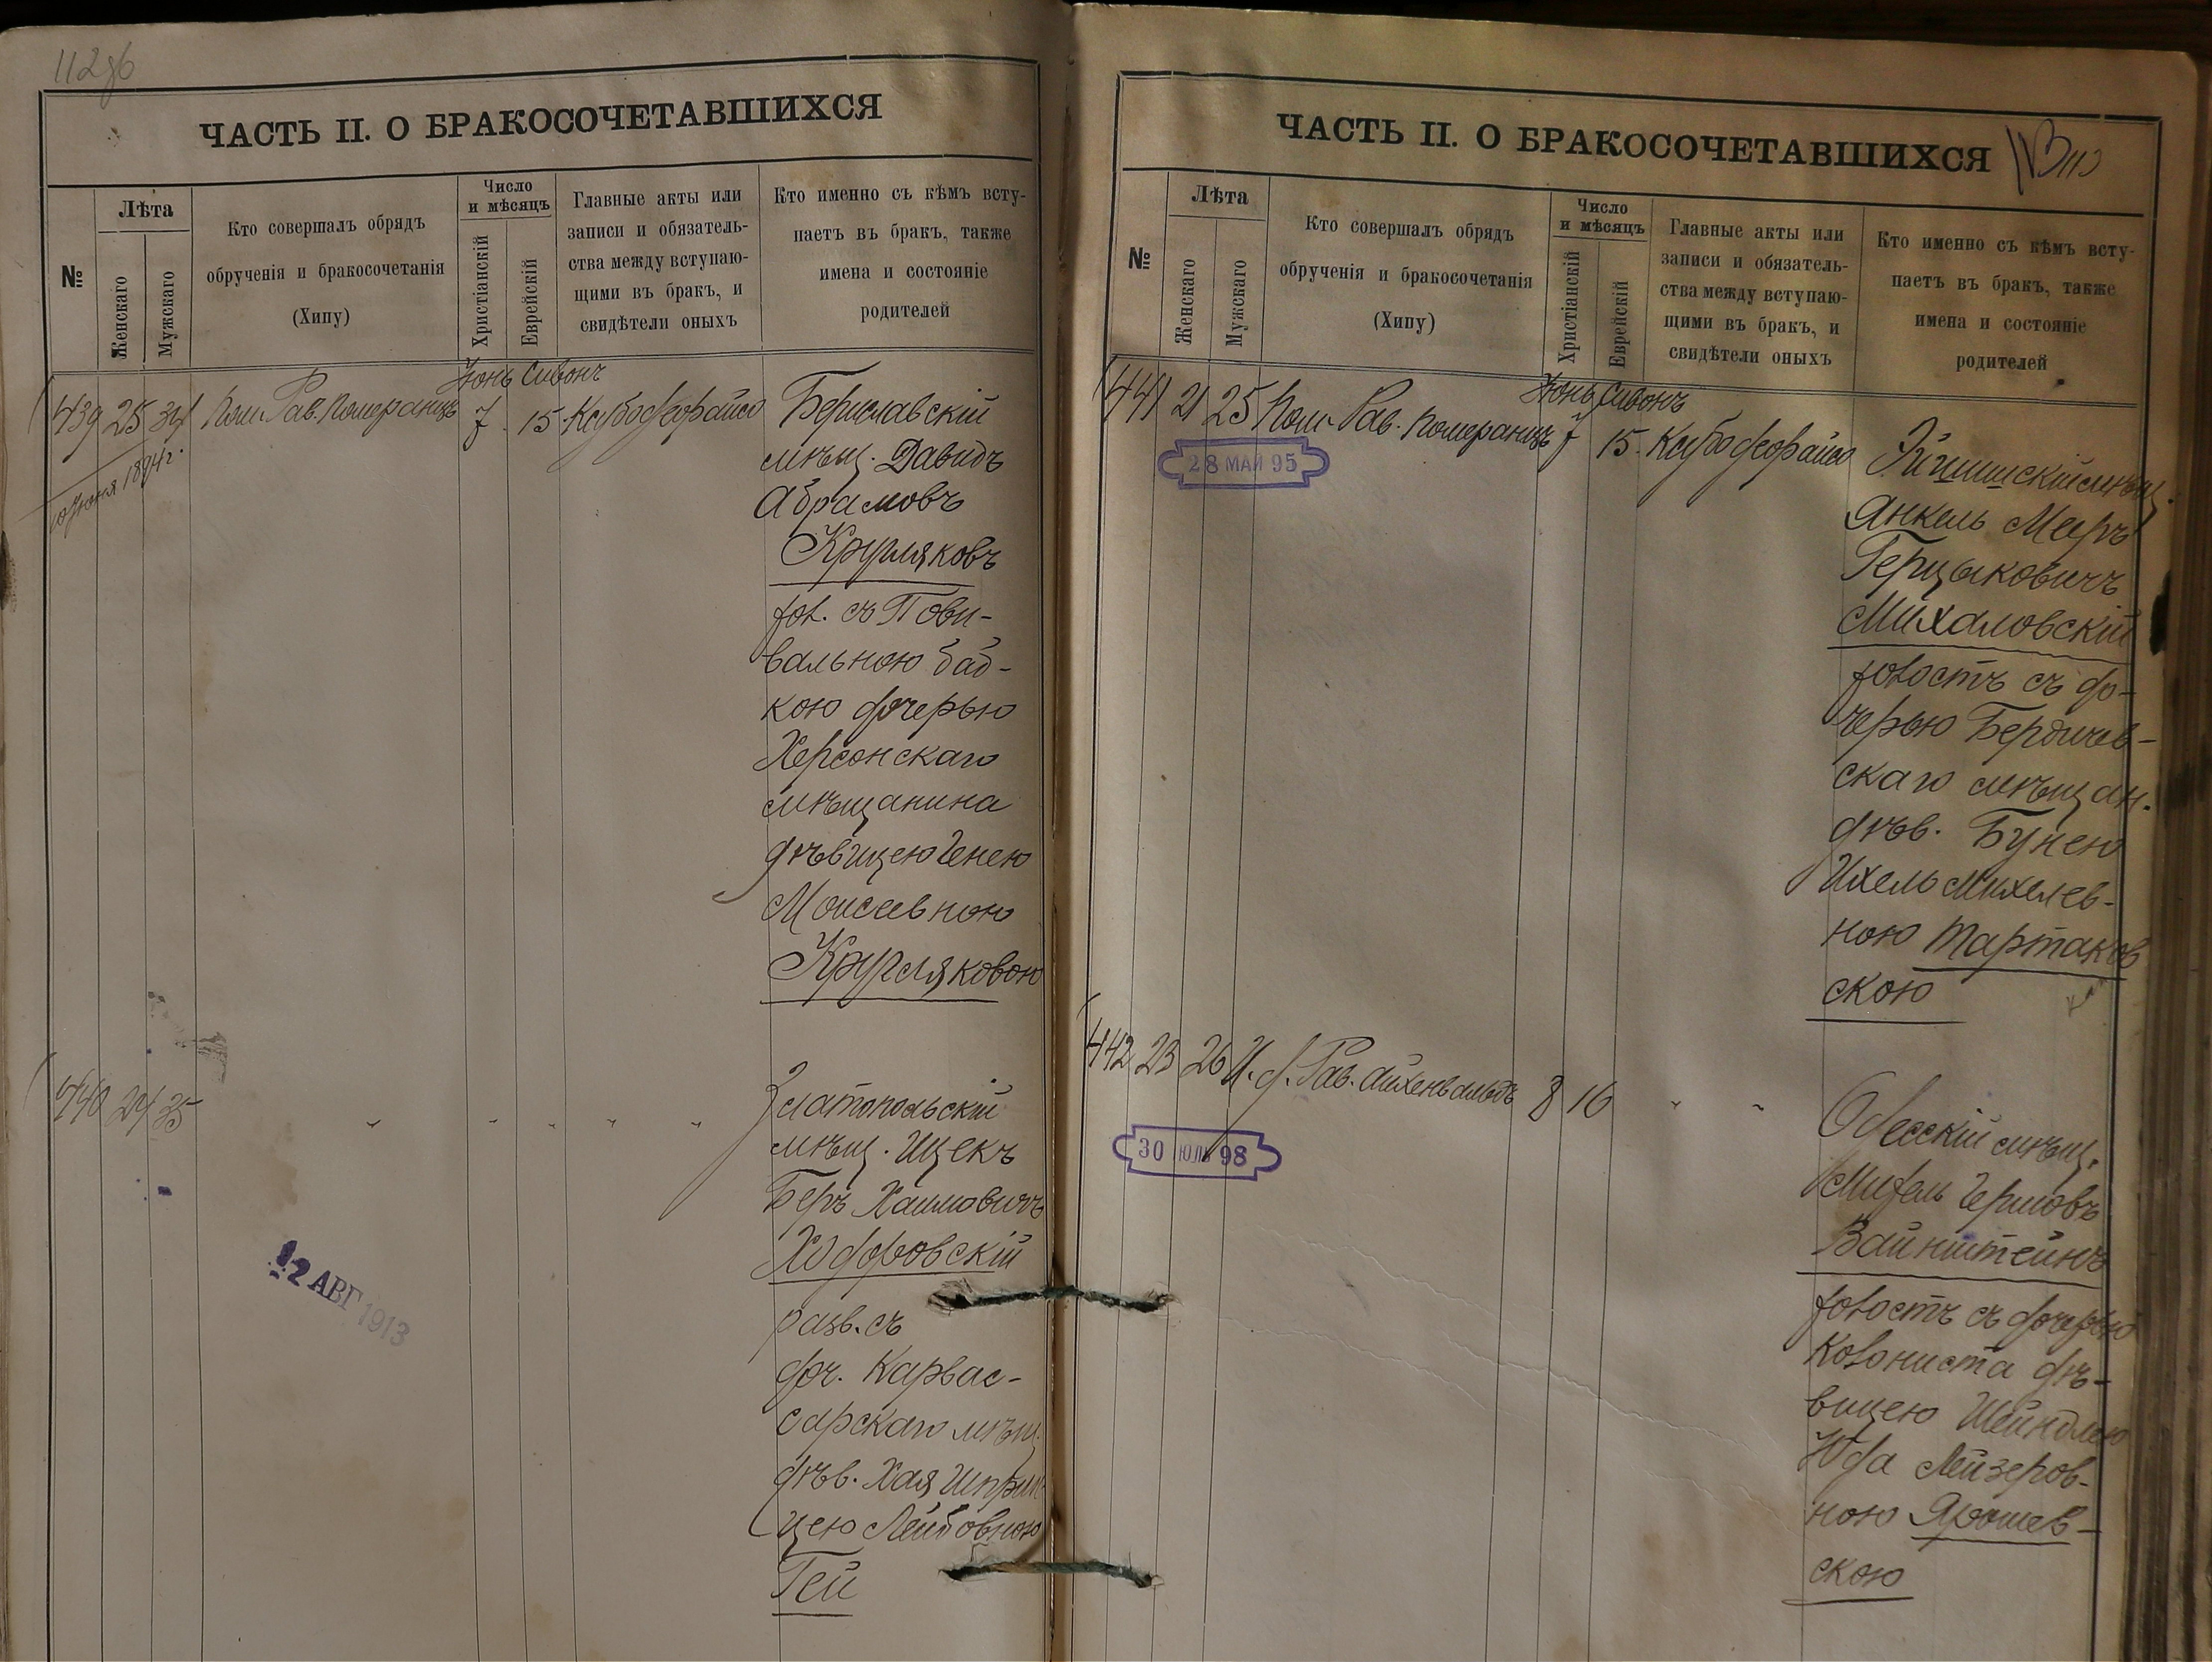 112об
ЧАСТЬ II. О БРАКОСОЧЕТАВШИХСЯ
№
Лѣта
Женскаго
Мужскаго
Кто совершалъ обрядъ
обрученія и бракосочетанія
(Хипу)
Число
и мѣсяцъ
Христіанскій
Еврейскій
Главные акты или
записи и обязатель-
ства между вступаю-
щими въ бракъ, и
свидѣтели оныхъ
Кто именно съ кѣмъ всту-
паетъ въ бракъ, также
имена и состояніе
родителей
Іюнь Сивонъ
439 25 34 Пом. Рав. Померанцъ 7 15 Ксубо
Бериславскій
мѣщ. Давидъ
Абрамовъ
Кругляковъ
хол. съ Пови-
вальною баб-
кою дочерью
Херсонскаго
мѣщанина
дѣвицею Генею
Моисеевною
Кругляковою
Іюня 1894 г.
440 24 35 " " " " "
Златопольскій
мѣщ. Ицекъ
Беръ Хаимовичъ
Ходоровскій
разв. съ
доч. Карвас-
сарскаго мѣщ.
дѣв. Хая Шприн-
цею Лейбовною
Гей
12 АВГ 1913
ЧАСТЬ II. О БРАКОСОЧЕТАВШИХСЯ
113
№
Лѣта
Женскаго
Мужскаго
Кто совершалъ обрядъ
обрученія и бракосочетанія
(Хипу)
Число
и мѣсяцъ
Христіанскій
Еврейскій
Главные акты или
записи и обязатель-
ства между вступаю-
щими въ бракъ, и
свидѣтели оныхъ
Кто именно съ кѣмъ всту-
паетъ въ бракъ, также
имена и состояніе
родителей
Іюнь Сивонъ
441 21 25 Пом. Рав. Померанцъ 7 15 Ксубо
28 МАЙ 95
Эйшишскій мѣщ.
Янкель Мееръ
Герцыковичъ
Михаловскій
холостъ съ до-
черью Бердичев-
скаго мѣщан.
дѣв. Бунею
Ихель Михелев-
ною Тартаков
скою
442 23 26 И. д. Рав. Айхенвальдъ 8 16 " "
30 ЮЛЬ 98
Одесскій мѣщ.
Гершовъ
Вайнштейнъ
холостъ съ дочерью
колониста дѣ-
вицею Шейндлею
Лейзеров-
ною Ярошев-
скою